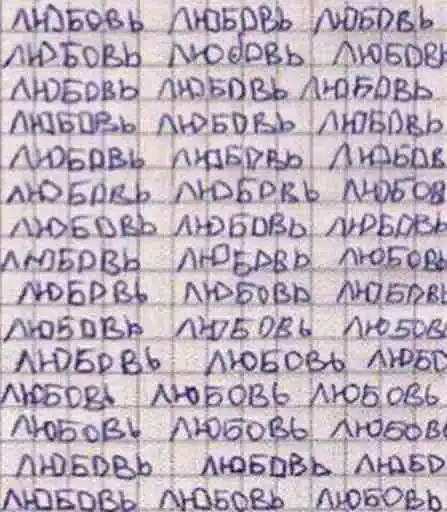 ЛЮБОВЬ ЛЮБОВЬ ЛЮБОВЬ
ЛЮБОВЬ ЛЮбОВЬ ЛЮБОВ
ЛЮБОВЬ ЛЮБОВЬ ЛЮБОВЬ
ЛЮБОВЬ ЛЮБОВЬ ЛЮБОВЬ
ЛЮБОВЬ ЛЮБОВЬ ЛЮБОВ
ЛЮБОВЬ ЛЮБОВЬ ЛЮБОВ
ЛЮБОВЬ ЛЮБОВЬ ЛЮБОВЬ
ЛЮБОВЬ ЛЮБОВЬ ЛЮБОВЬ
ЛЮБОВЬ ЛЮБОВЬ ЛЮБОВЬ
ЛЮБОВЬ ЛЮБОВЬ ЛЮБОВ
ЛЮБОВЬ ЛЮБОВЬ ЛЮБО
ЛЮБОВЬ ЛЮБОВЬ ЛЮБОВЬ
ЛЮБОВЬ ЛЮБОВЬ ЛЮБОВ
ЛЮБОВЬ ЛЮБОВЬ ЛЮБО
ЛЮБОВЬ ЛЮБОВЬ ЛЮБОВЬ